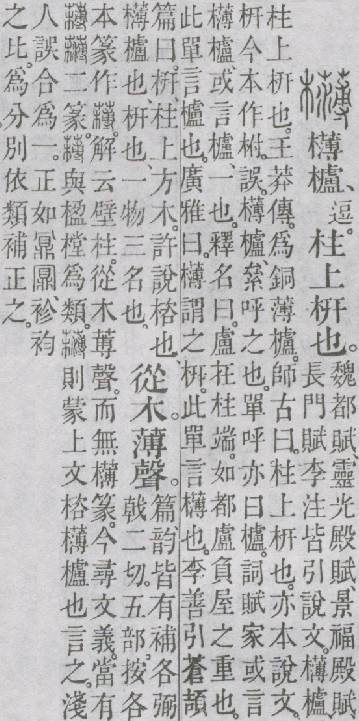 欂櫨、逗。柱上枅也。魏都賦、靈光殿賦、景福殿賦、
長門賦李注皆引說文。欂櫨
柱上枅也。王莽傳。爲銅薄櫨。師古曰。柱上枅也。亦本說文。
枅今本作柎、誤。欂櫨絫呼之也。單呼亦曰櫨。詞賦家或言
欂櫨或言櫨、一也。釋名曰。盧在柱端。如都盧負屋之重也。
此單言櫨也。廣雅曰。欂謂之枅。此單言欂也。李善引蒼頡
篇曰。枅、柱上方木。許說楶也、
欂櫨也、枅也、一物三名也、
從木薄聲。篇韵皆有補各弼
戟二切。五部。按各
本篆作欂。解云壁柱。從木蒪聲。而無欂篆。今尋文義。當有
欂欂二篆。欂與楹樘爲類。欂則蒙上文楶欂櫨也言之。淺
人誤合爲一。正如鼏𪔅、袗袀
之比。爲分別依類補正之。